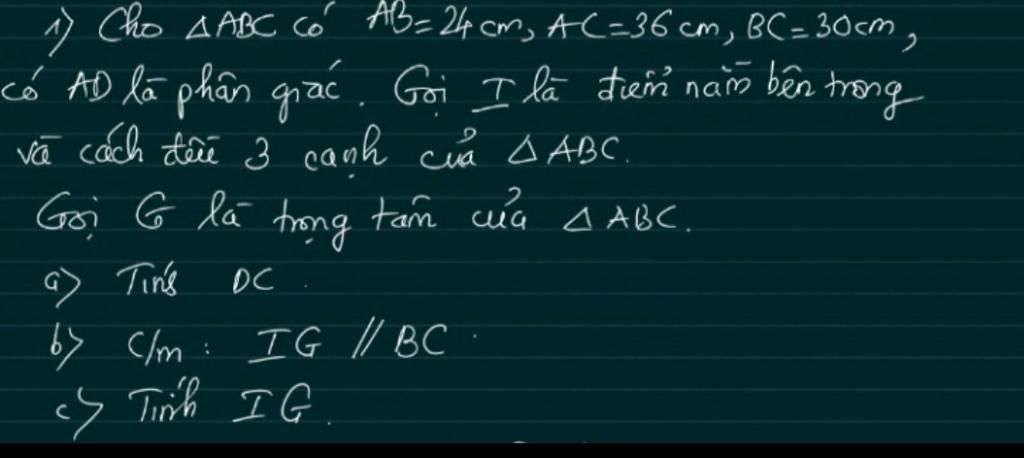 1) Cho △ABC có AB=24cm, AC=36cm, BC=30cm,
có AD là phân giác. Gọi I là điểm nằm bên trong
và cách đều 3 cạnh của △ABC.
Gọi G là trọng tâm của △ABC.
a) Tính DC.
b) C/m: IG // BC.
c) Tính IG.